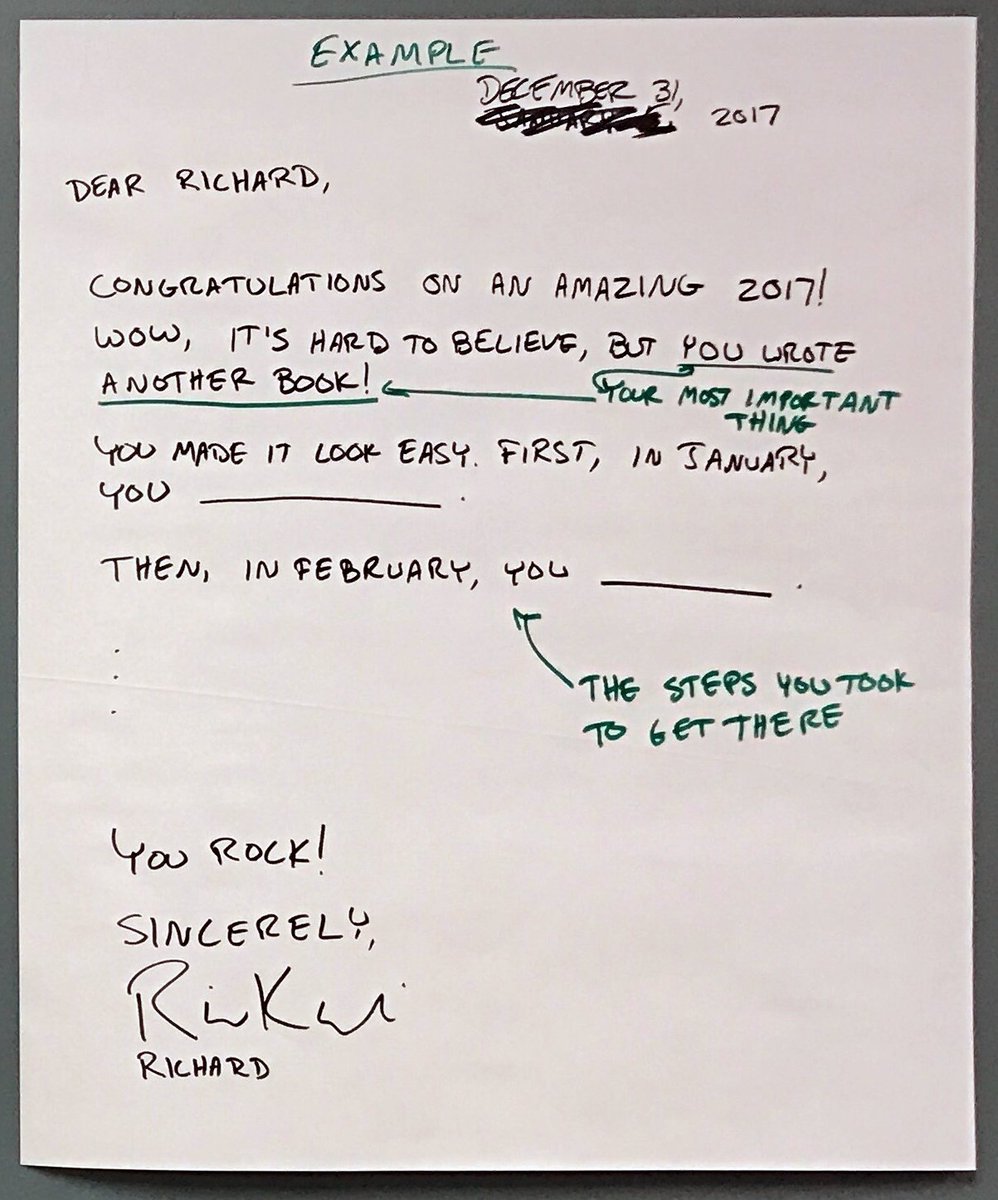 EXAMPLE
DECEMBER 31,
2017
DEAR RICHARD,
CONGRATULATIONS ON AN AMAZING 2017!
WOW, IT'S HARD TO BELIEVE, BUT YOU WROTE
ANOTHER BOOK!
YOUR MOST IMPORTANT
THING
YOU MADE IT LOOK EASY. FIRST, IN JANUARY,
YOU ____________ .
THEN, IN FEBRUARY, YOU __________ .
.
.
.
THE STEPS YOU TOOK
TO GET THERE
YOU ROCK!
SINCERELY,
RICHARD